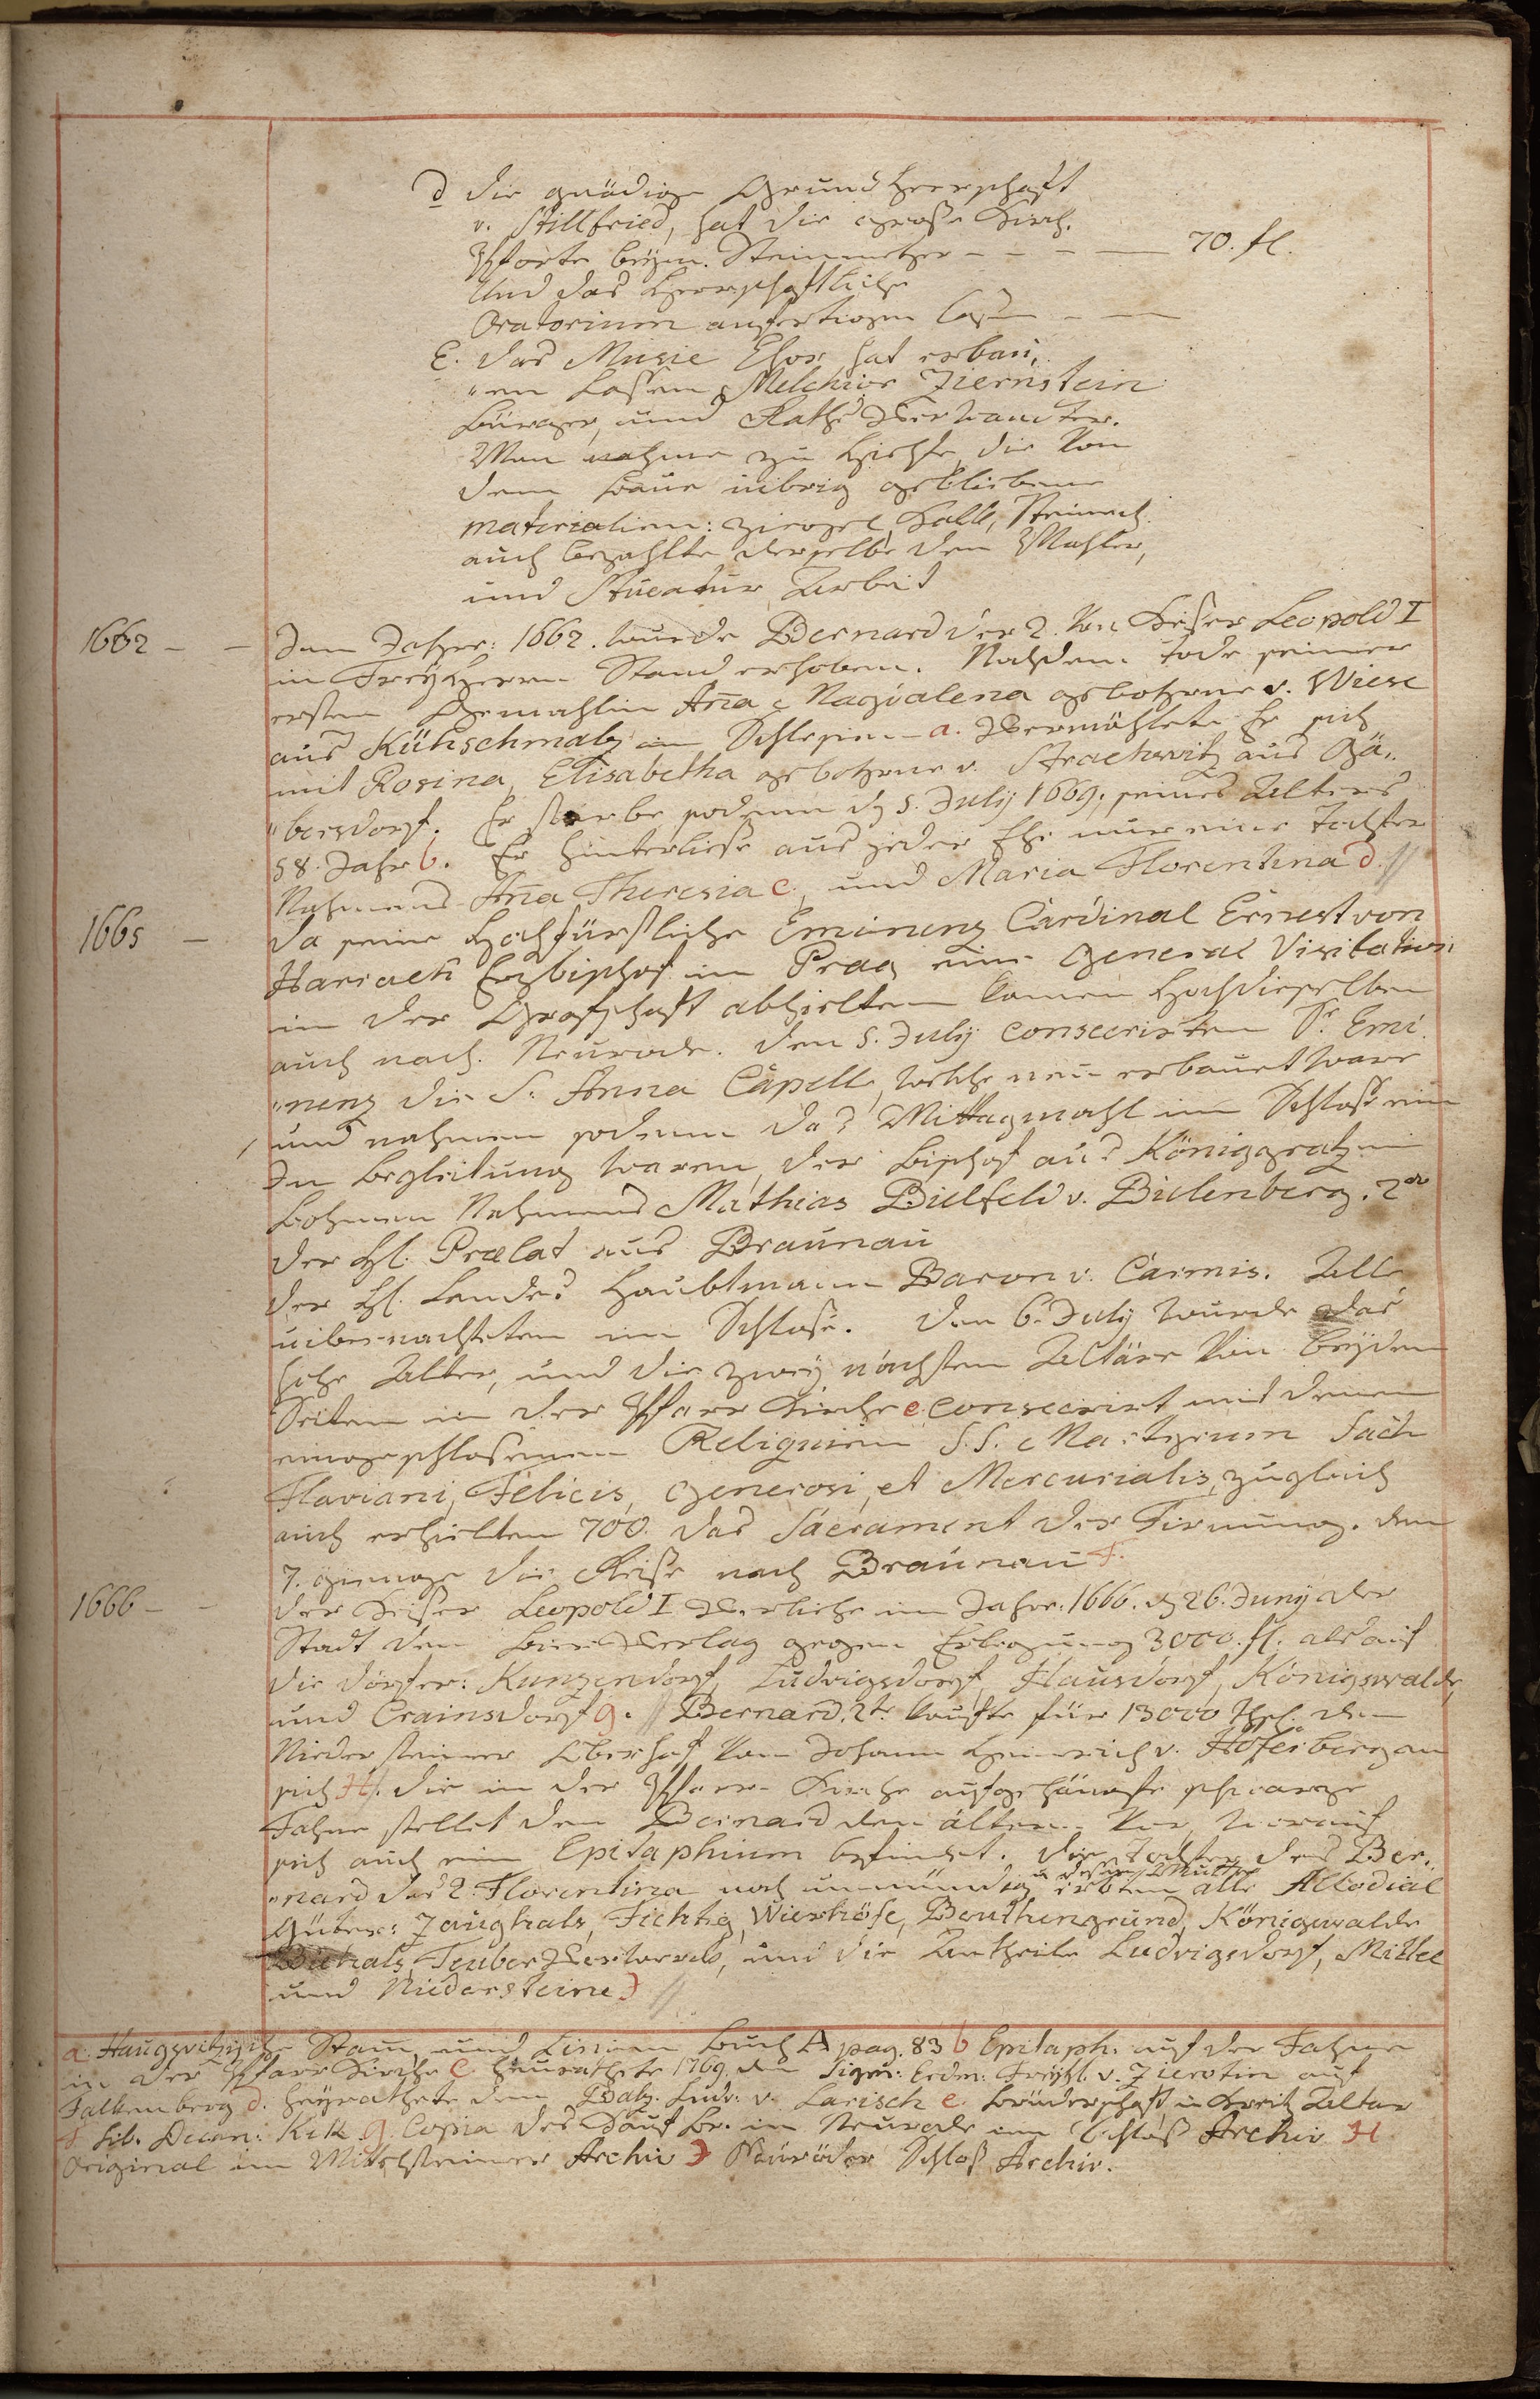 d die gnädige Grund Herrschaft
v. Stillfried, hat die große Kirch.
Pforte beym. Steinmetzer - - - — 70. fl.
Und das Herrschaftliche
Oratorium anfertigen laßen - —
E. das Music Chor hat erbau„
„en laßen Melchior Ziernstein
Bürger, und Raths Verwandter.
Man nahme zu Hielfe, die von
dem Baue übrig gebliebene
materialien: Ziegel, Kalk,
auch bezahlte derselbe den Mahler,
und Stucatur Arbeit
1662 - - Im Jahre: 1662. wurde Bernard der 2. von Keiser Leopold I
in Freyherrn Stand erhoben. Nach dem Tode seiner
ersten Gemahlin Anna Magdalena gebohrne v. Wiese
aus Kühschmalz in Schlesien - a. Vermählete Er sich
mit Rosina, Elisabetha gebohrne v. Strachwitz aus Gä„
„bersdorf. Er starbe sodann d 5. July 1669. seines Alters
58. Jahr b. Er hinterließe aus jeder Ehe nur eine Tochter
Nahmens Anna Theresia c, und Maria Florentina d. //
1665 - da seine Hochfürstliche Eminenz Cardinal Ernest von
Harrach Erzbischof in Prag eine General Visitation
in der Grafschaft abhielten kamen Hochdieselben
auch nach. Neurode. den 5. July consecrirten Sr. Emi„
„nenz die S. Anna Capelle, welche neu erbauet ware
und nahmen sodann das Mittagmahl im Schloße ein
In Begleitung waren, der Bischof aus Königgratz in
Bohmen Nahmens Mathias Bielfeld v. Bielenberg. 2
der H. Prælat aus Braunau
der H. Landes Haubtmann Baron v. Carmis. Alle
uiber-nachteten im Schloße. den 6. July wurde das
hohe Alter, und die zwey nächsten Altäre von beyden
Seiten in der Pfarr Kirche e. consecrirt mit denen
eingeschloßenen Reliquien S.S. Martyrum
Flaviani, Felicis, Generosi, et Mercurialis, zugleich
auch erhielten 700. das Sacrament der Firmung. den
7. gienge die Reise nach Braunau f.
1666 - - der Keiser Leopold I Verliehe im Jahre: 1666. d 26. Juny der
Stadt den Bier Verlag gegen Erlegung 3000. fl. als auf
die dörfer: Kunzendorf, Ludwigsdorf, Hausdorf, Königswalde,
und Crainsdorf g. // Bernard. 2te kaufte für 13000 thl. den
Nieder steiner Oberhof von Johann Heinrich v. Höferberg an
sich H. die in der Pfarr- Kirche aufgehängte schwarze
Fahne stellet den Bernard den ältern Vor, worauf
sich auch ein Epitaphium befindet. die Tochter des Ber„
„nard des 2. Florentina noch unmündig u deßen Mutter erbten alle Allodial
Güter: Zaughals, Fichtig, Wierhöfe, Beuthengrund, Königswalde
Biehals, Teuber Vorwerk, und die Antheile Ludwigsdorf, Mittel
und Niedersteine J //
a. Haugwitzische Stam und Linien Buch A pag. 83 b Epitaph. auf der Fahne
in der Pfarr Kirche c. heurathete 1769. den Sigm: Erdm: Freyhl. v. Zierotin auf
Falkenberg d. heyrathete den Balz. Ludw. v. Larisch e. Bruderschaft u Kreitz Altar
f. Lib. Decan: Kek g. Copia des Kauf Br. in Neurode im Schloß Archiv H
Original im Mittelsteiner Archiv J Neuröder Schloß Archiv.